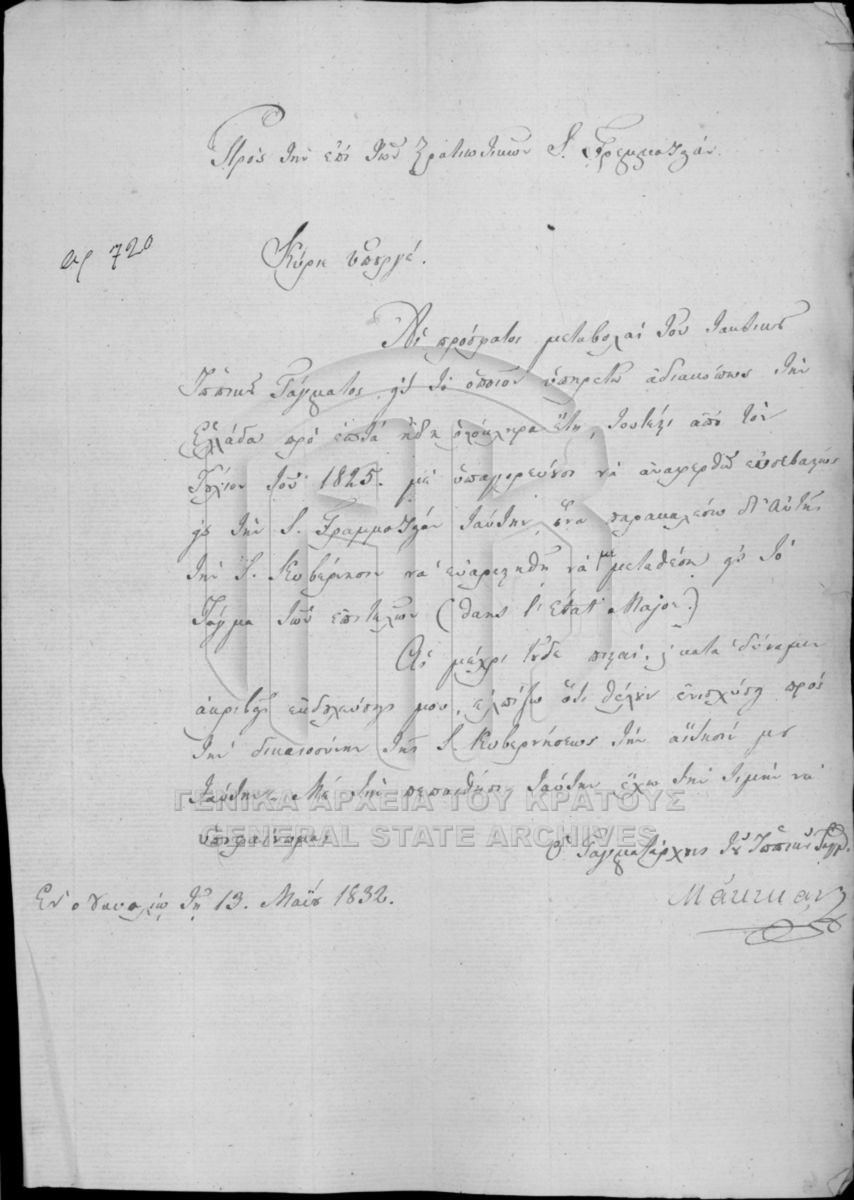 Πρὸς τὴν ἐπὶ τῶν Στρατιωτικῶν Σ. Γραμματείαν.
αρ 720
Κύριε ὑπουργέ.
Αἱ πρόσφατοι μεταβολαὶ τοῦ τακτικοῦ
Ἱππικοῦ Τάγματος, εἰς τὸ ὁποῖον ὑπηρετῶ ἀδιακόπως τὴν
Ἑλλάδα πρὸ ἑπτὰ ἤδη ὁλόκληρα ἔτη, τουτέστι ἀπὸ τὸν
Ἰούλιον τοῦ 1825. μὲ ὑπαγορεύουσι νὰ ἀναφερθῶ εὐσεβάστως
εἰς τὴν Σ. Γραμματείαν ταύτην, ἵνα παρακαλέσω δι' Αὐτῆς
τὴν Σ. Κυβέρνησιν νὰ εὐαρεστηθῇ νὰ με μεταθέσῃ εἰς τὸ
Τάγμα τῶν ἐπιτελῶν (dans l'Etat Major.)
Αἱ μέχρι τοῦδε πισταὶ, κατὰ δύναμιν
ἀκριβεῖς ἐκδουλεύσεις μου, ἐλπίζω ὅτι θέλουν ἐνισχύσῃ πρὸς
τὴν δικαιοσύνην τῆς Σ. Κυβερνήσεως τὴν αἴτησίν μου
ταύτην. Μὲ τὴν πεποίθησιν ταύτην ἔχω τὴν τιμὴν νὰ
ὑποφαίνωμαι
Ὁ Ταγματάρχης τοῦ Ἱππικοῦ Τάγμ.
Ἐν Ναυπλίῳ τῇ 13. Μαΐου 1832.
ΓΕΝΙΚΑ ΑΡΧΕΙΑ ΤΟΥ ΚΡΑΤΟΥΣ
GENERAL STATE ARCHIVES